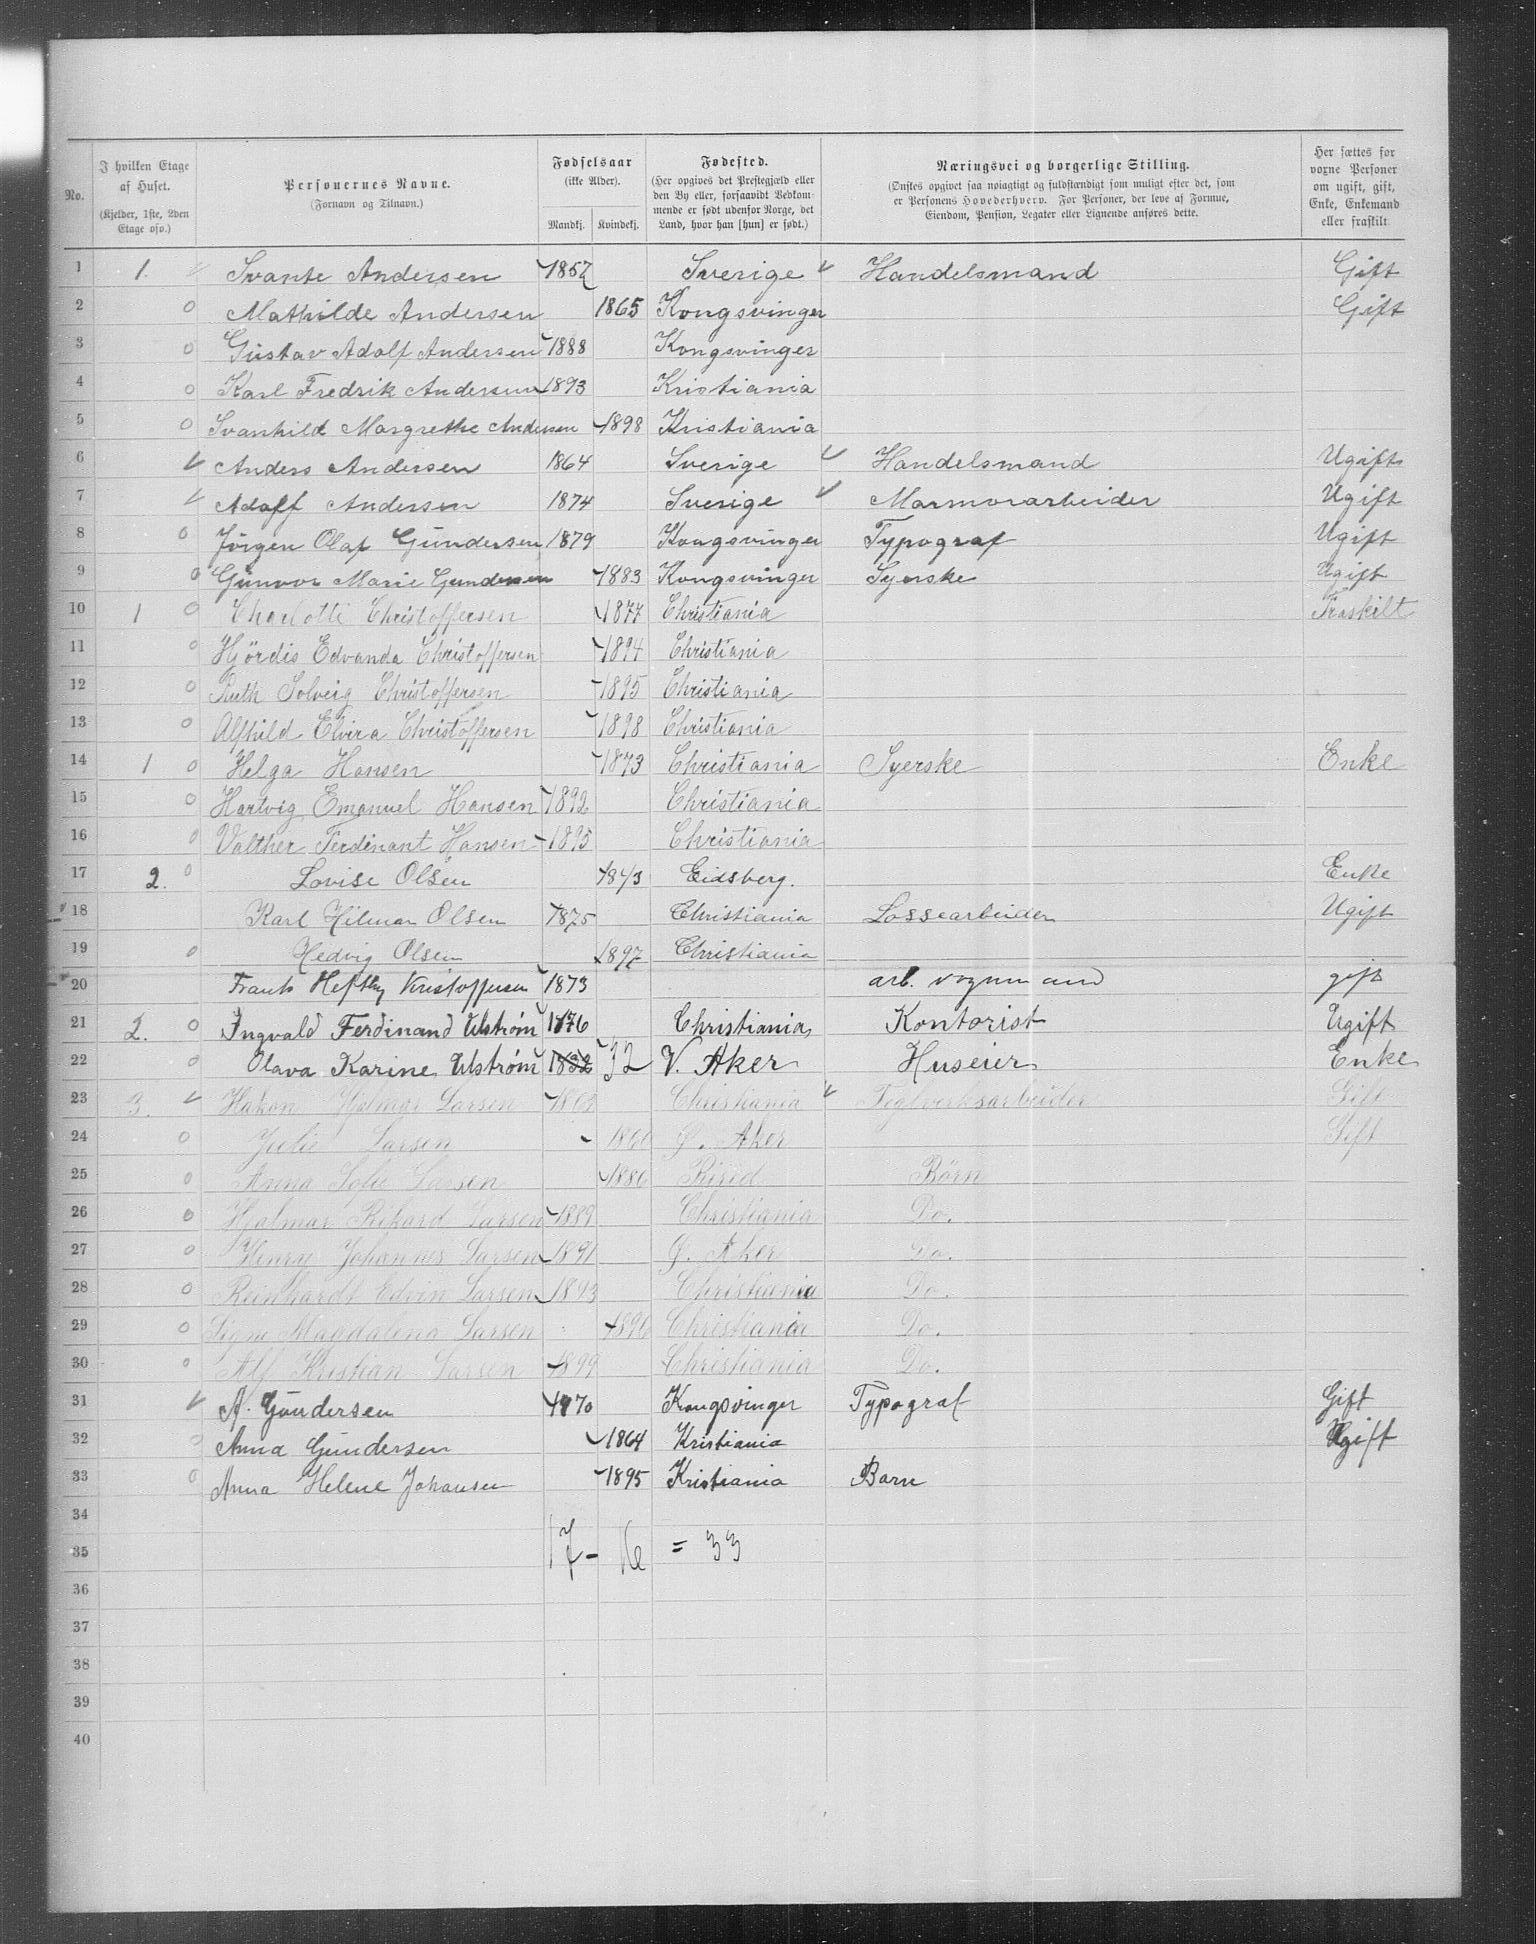 No. I hvilken Etage af Huset. (Kjelder, 1ste, 2den Etage osv.) Personernes Navne. (Fornavn og Tilnavn.) Fødselsaar (ikke Alder). Mandkj. Kvindekj. Fødested. (Her opgives det Prestegjæld eller den By eller, forsaavidt Vedkommende er født udenfor Norge, det Land, hvor han [hun] er født.) Næringsvei og borgerlige Stilling. (Ønskes opgivet saa nøiagtigt og fuldstændigt som muligt efter det, som er Personens Hovederhverv. For Personer, der leve af Formue, Eiendom, Pension, Legater eller Lignende anføres dette. Her sættes for voxne Personer om ugift, gift, Enke, Enkemand eller fraskilt
1 1. Svante Andersen 1857 Sverige Handelsmand Gift
2 0 Mathilde Andersen 1865 Kongsvinger Gift
3 0 Gustav Adolf Andersen 1888 Kongsvinger
4 0 Karl Fredrik Andersen 1893 Kristiania
5 0 Svanhild Margrethe Andersen 1898 Kristiania
6 Anders Andersen 1864 Sverige Handelsmand Ugift
7 Adolf Andersen 1874 Sverige Marmorarbeider Ugift
8 0 Jörgen Olaf Gundersen 1879 Kongsvinger Typograf Ugift
9 0 Gunvor Marie Gundersen 1883 Kongsvinger Syerske Ugift
10 1 0 Charlotte Christoffersen 1877 Christiania Fraskilt
11 0 Hjördis Edvanda Christoffersen 1894 Christiania
12 0 Ruth Solveig Christoffersen 1895 Christiania
13 0 Alfhild Elvira Christoffersen 1898 Christiania
14 1 0 Helga Hansen 1873 Christiania Syerske Enke
15 0 Hartvig Emanuel Hansen 1892 Christiania
16 0 Valther Ferdinant Hansen 1895 Christiania
17 2. 0 Lovise Olsen 1843 Eidsberg. Enke
18 Karl Hilmar Olsen 1875 Christiania Lossearbeider Ugift
19 0 Hedvig Olsen 1897 Christiania
20 Frants Heftby Kristoffersen 1873 arb. vognmand gift
21 2. 0 Ingvald Ferdinand Ulstrøm 1876 Christiania Kontorist Ugift
22 0 Olava Karine Ulstrøm 1832 32 V. Aker Huseier Enke
23 3. Hakon Hjalmar Larsen 1863 Christiania Teglverksarbeider Gift
24 0 Julie Larsen 1860 Ø. Aker Gift
25 0 Anna Sofie Larsen 1886 Børn
26 0 Hjalmar Rikard Larsen 1889 Christiania Do.
27 0 Henry Johannes Larsen 1891 Ø. Aker Do.
28 0 Reinhardt Edvin Larsen 1893 Christiania Do.
29 0 Signe Magdalena Larsen 1896 Christiania Do.
30 0 Alf Kristian Larsen 1899 Christiania Do.
31 A. Gundersen 1870 Kongsvinger Typograf Gift
32 0 Anna Gundersen 1864 Kristiania Gift
33 0 Anna Helene Johansen 1895 Kristiania Barn
34
35 17 - 16 = 33
36
37
38
39
40